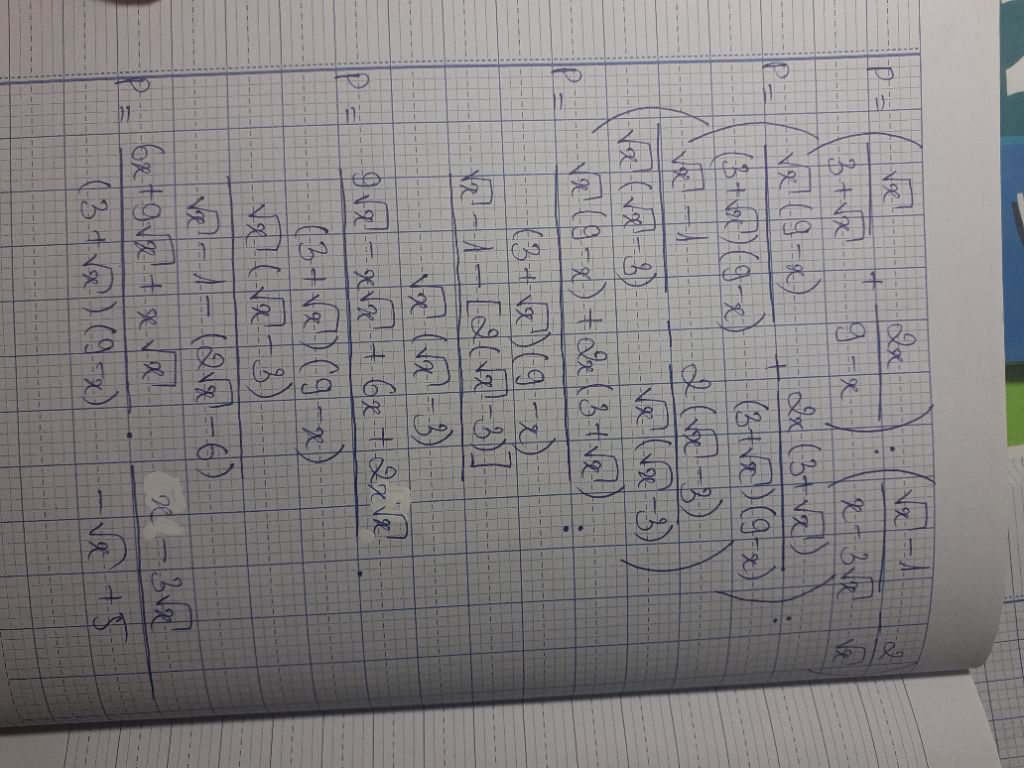 P = (√x / (3+√x) + 2x / (9-x)) : ((√x-1) / (x-3√x) - 2 / √x)
P = (√x(9-x) / ((3+√x)(9-x)) + 2x(3+√x) / ((3+√x)(9-x))) :
((√x-1) / (√x(√x-3)) - 2(√x-3) / (√x(√x-3)))
P = (√x(9-x) + 2x(3+√x)) / ((3+√x)(9-x)) :
(√x - 1 - [2(√x-3)]) / (√x(√x-3))
P = (9√x - x√x + 6x + 2x√x) / ((3+√x)(9-x)) .
√x(√x-3) / (√x - 1 - (2√x-6))
P = (6x + 9√x + x√x) / ((3+√x)(9-x)) . (x - 3√x) / (-√x + 5)